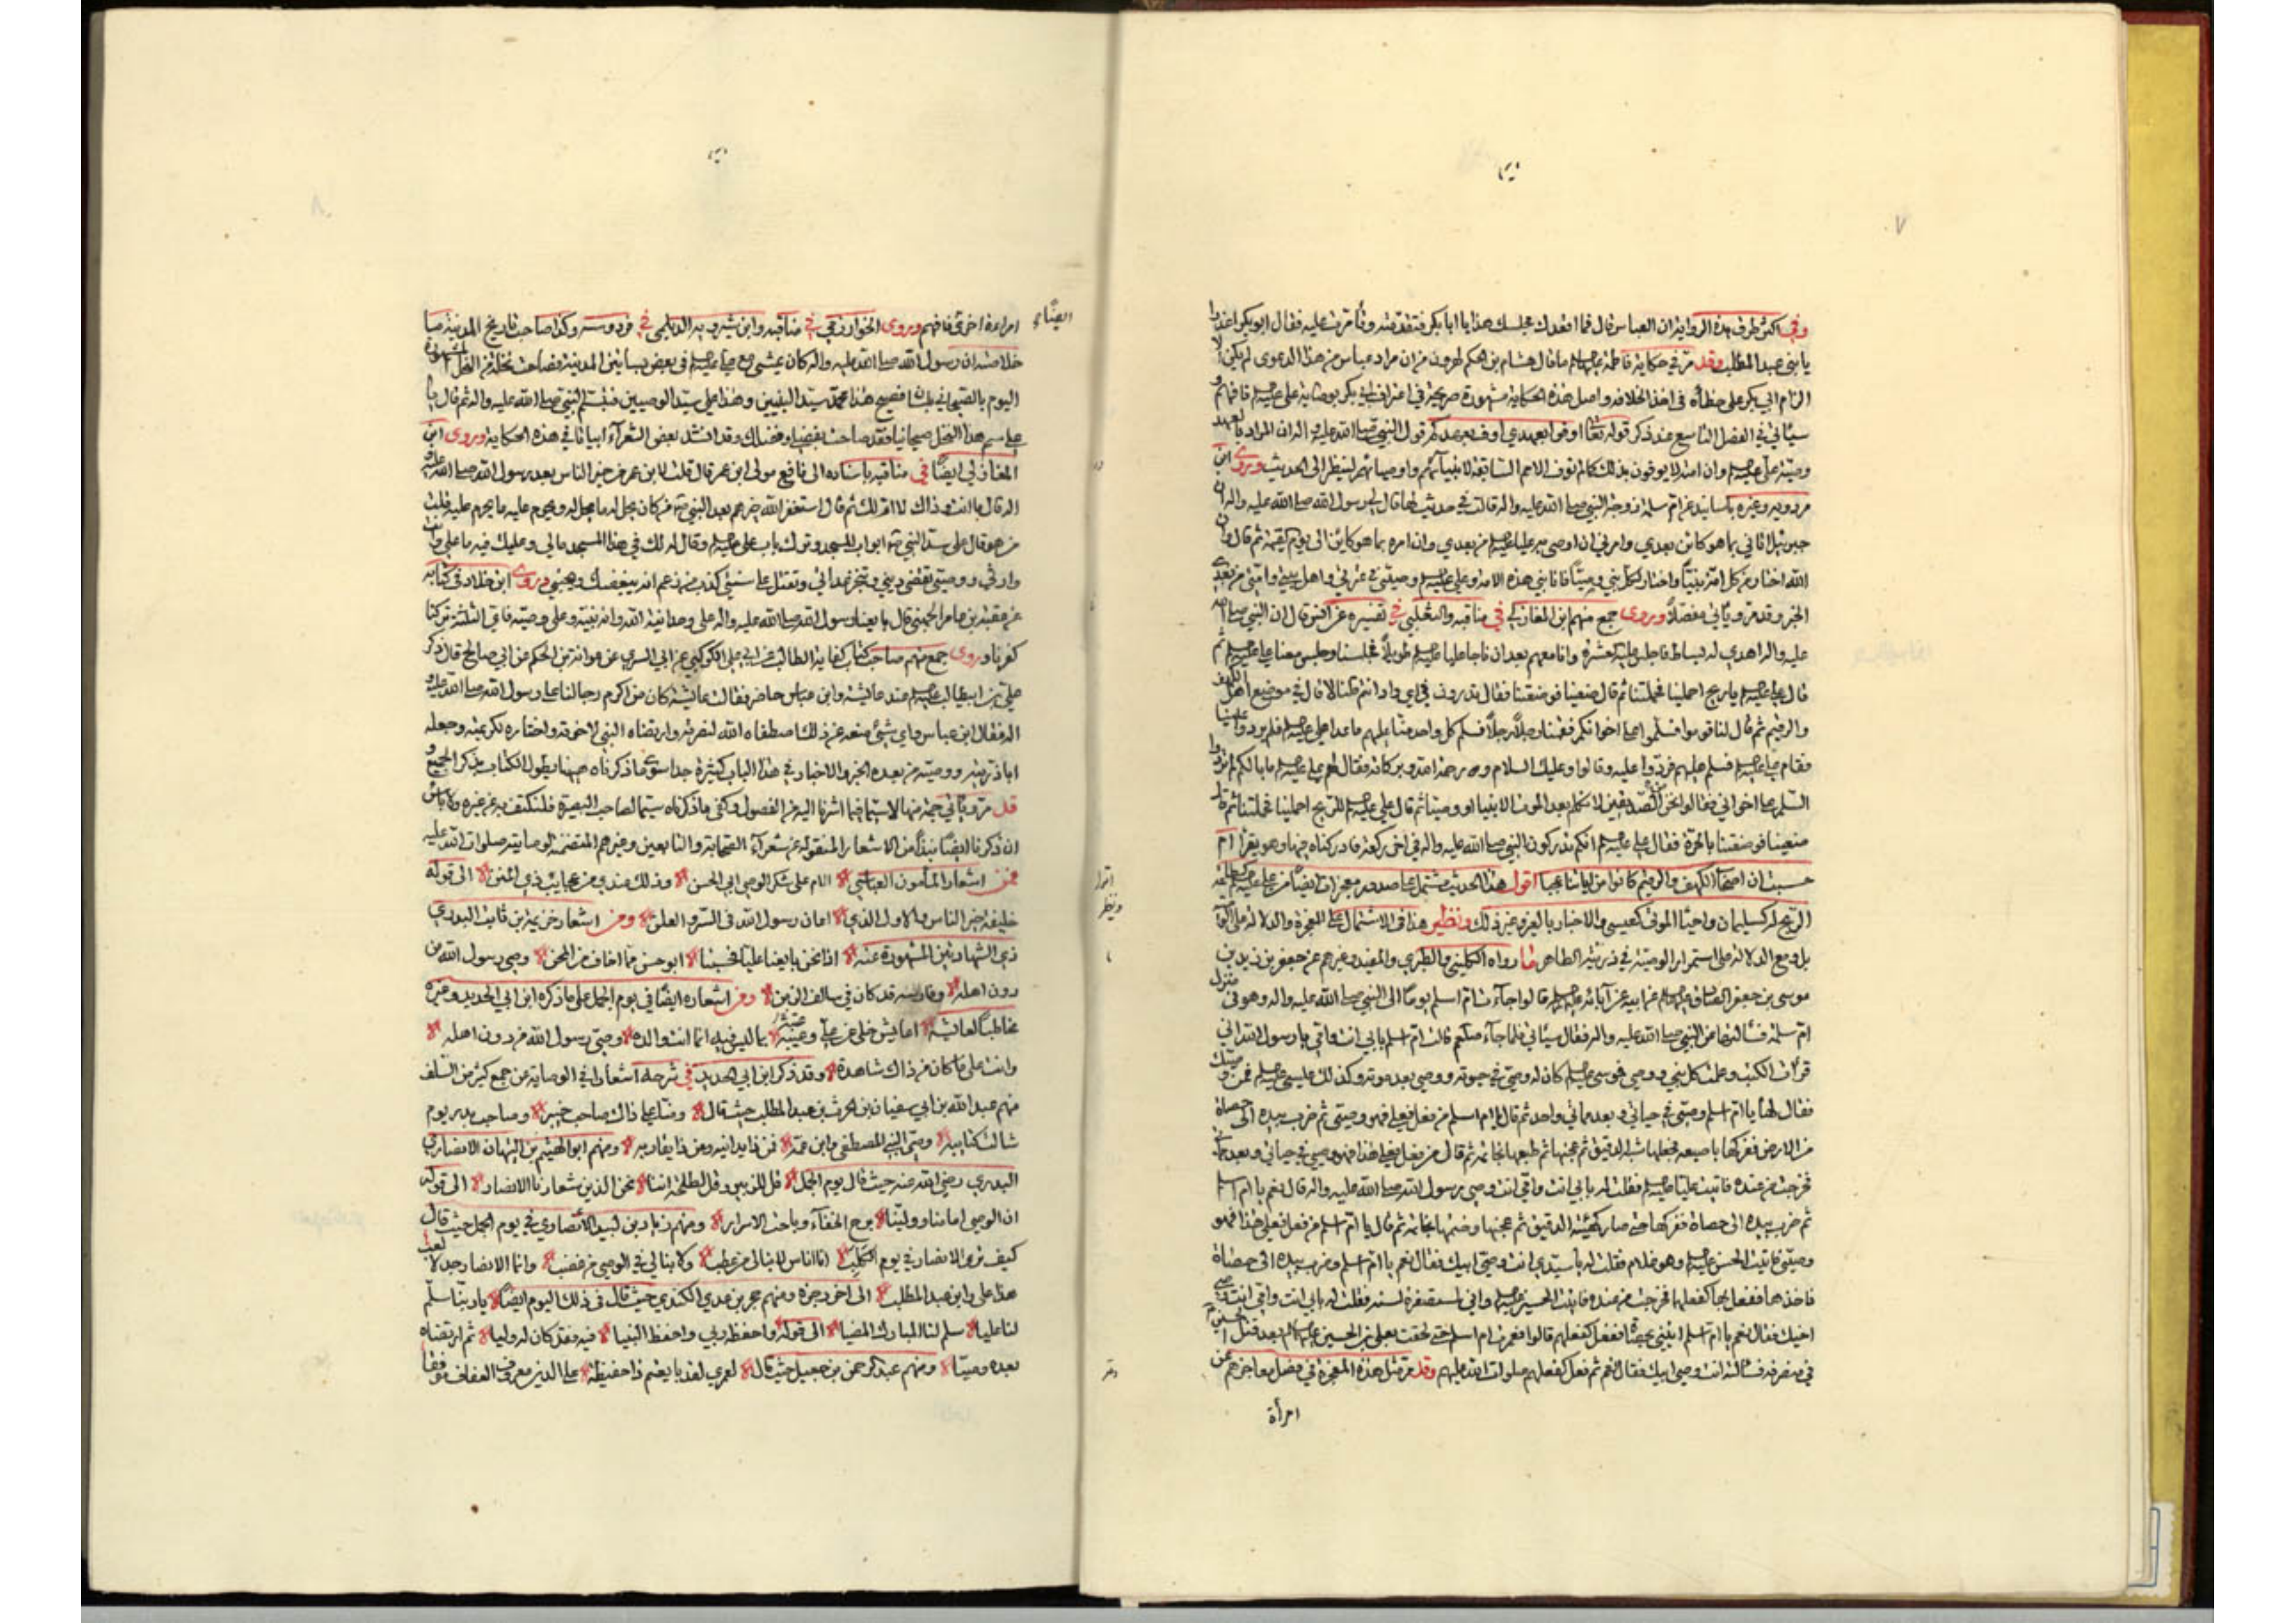 ٧
وفي اكثر طرق هذه الرواية ان العباس قال فما اقعدك مجلسك هذا يا ابا بكر فتقدمته وتأمرت عليه فقال ابو بكر اغدرا
يا بني عبد المطلب وقد مرّ في حكاية فاطمة ما قال هشام بن الحكم لهرون من ان مراد عباس من هذا الدعوى لم يكن الا
الزام ابي بكر على خطأه في اخذ الخلافة واصل هذه الحكاية مشهورة صريحة في اعتراف ابي بكر بوصاية علي فافهم و
سيأتي في الفصل التاسع عند ذكر قوله تعالى اوفوا بعهدي اوف بعهدكم قول النبي صلى الله عليه واله ان المراد بالعهد
وصية علي وان امته لا يوفون بذلك كما لم توف الامم السابقة لانبيائهم واوصيائهم لينظر الى الحديث وروى ابن
مردويه وغيره باسانيد عن ام سلمة زوجة النبي صلى الله عليه واله قالت في حديث لها قال لي رسول الله صلى الله عليه واله ان
جبرئيل اتاني بما هو كائن بعدي وامرني ان اوصي به عليا من بعدي وان امره بما هو كائن الى يوم القيمة ثم قال ان
الله اختار من كل امة نبيّا واختار لكل نبي وصيّا فانا نبي هذه الامة وعلي وصيتي في عترتي واهل بيتي وامتي من بعدي
الخبر وقد مرّ ويأتي مفصلاً وروى جمع منهم ابن المغازلي في مناقبه والثعلبي في تفسيره عن انس قال ان النبي صلى الله
عليه واله اهدي له بساط فاجلس عليه عشرة وانا معهم بعد ان ناجا عليا طويلاً فجلسنا وجلس معنا علي ثم
قال علي يا ريح احملينا فحملتنا ثم قال ضعينا فوضعتنا فقال تدرون في اي واد انتم قلنا لا قال في موضع اهل الكهف
والرقيم ثم قال لنا قوموا فسلموا على اخوانكم فقمنا رجلاً رجلاً فسلم كل واحد منا عليهم ما عدا علي فلم يردوا علينا
فقام علي فسلم عليهم فردوا عليه وقالوا وعليك السلام ورحمة الله وبركاته فقال لهم علي ما بالكم لم تردوا
السلم على اخواني فقالوا نحن الصدّيقين لا نكلم بعد الموت الا نبيا او وصيّا ثم قال علي للريح احملينا فحملتنا ثم قال
ضعينا فوضعتنا بالحرة فقال علي انكم تدركون النبي صلى الله عليه واله في اخر ركعة فادركناه فيها وهو يقرأ ام
حسبت ان اصحاب الكهف والرقيم كانوا من اياتنا عجبا اقول هذا الحديث مشتمل على صدور معجزات ايضا من علي
الريح له كسليمان واحيا الموتى كعيسى والاخبار بالغيب وغير ذلك ونظير هذا في الاشتمال على المعجزة والدلالة على
بل ومع الدلالة على استمرار الوصية في ذريته الطاهرة ما رواه الكليني والطبري والمفيد وغيرهم عن جعفر بن زيد بن
موسى بن جعفر الصادق عن ابيه عن آبائه قالوا جاءت ام اسلم يوما الى النبي صلى الله عليه واله وهو في منزل
ام سلمة فسألتها عن النبي صلى الله عليه واله فقال سيأتي فلما جاء قالت ام اسلم بابي انت وامي يا رسول الله اني
قرأت الكتب وعلمت كل نبي ووصي فموسى كان له وصي في حيوته ووصي بعد موته وكذلك عيسى فمن وصيك
فقال لها يا ام اسلم وصيّي في حياتي وبعد مماتي واحد ثم قال يا ام اسلم من فعل فعلي فهو وصيتي ثم ضرب بيده الى حصاة
من الارض ففركها باصبعه فجعلها شبه الدقيق ثم عجنها ثم طبعها بخاتمه ثم قال من فعل فعلي هذا فهو وصيي في حياتي وبعد مماتي
فخرجت من عنده فاتيت عليا فقلت له بابي انت وامي انت وصي رسول الله صلى الله عليه واله قال نعم يا ام اسلم
ثم ضرب بيده الى حصاة ففركها حتى صار كهيئة الدقيق ثم عجنها وختمها بخاتمه ثم قال يا ام اسلم من فعل فعلي هذا فهو
وصيّي فاتيت الحسن وهو غلام فقلت له يا سيدي انت وصيّ ابيك فقال نعم يا ام اسلم وضرب بيده الى حصاة
فاخذها ففعل بها كفعلهما فخرجت من عنده فاتيت الحسين واني لمستصغرة لسنه فقلت له بابي انت وامي انت وصي
اخيك فقال نعم يا ام اسلم ايتيني بحصاة ففعل كفعلهم قالوا فعمرت ام اسلم حتى لحقت بعلي بن الحسين بعد قتل الحسين
في منصرفه فسألته انت وصي ابيك فقال نعم ثم فعل كفعلهم صلوات الله عليهم وقد مرّ مثل هذه المعجزة في فصل معاجزهم عن
امرأة
٨
امراءة اخرى فافهم وروى الخوارزمي في مناقبه وابن شيرويه الديلمي في فردوسه وكذا صاحب تاريخ المدينة ما
خلاصته ان رسول الله صلى الله عليه واله كان يمشي مع علي في بعض بساتين المدينة فصاحت نخلة من النخل المشهورة
اليوم بالصيحاني بلسان فصيح هذا محمد سيد النبيين وهذا علي سيد الوصيين فتبسم النبي صلى الله عليه واله ثم قال يا
علي سم هذا النخل صيحانيا فقد صاحت بفضلي وفضلك وقد انشد بعض الشعراء ابياتا في هذه الحكاية وروى ابن
المغازلي ايضًا في مناقبه باسناده الى نافع مولى ابن عمر قال قلت لابن عمر من خير الناس بعد رسول الله صلى الله عليه و
اله قال ما انت وذاك لا ام لك ثم قال استغفر الله خيرهم بعد النبي من كان يحل له ما يحل له ويحرم عليه ما يحرم عليه قلت
من هو قال علي سدّ النبي ابواب المسجد وترك باب علي وقال له لك في هذا المسجد مالي وعليك فيه ما علي وانت
وارثي ووصيّي تقضي ديني وتنجز عداتي وتقتل على سنتي كذب من زعم انه يبغضك ويحبني وروى ابن خلاد في كتابه
عن عقبة بن عامر الجهني قال بايعنا رسول الله صلى الله عليه واله على وحدانية الله وانه نبيه وعلي وصيّه فاي الثلثة تركنا
كفرنا وروى جمع منهم صاحب كتاب كفاية الطالب عن ابي علي الكوكبي عن ابي السري عن عوانة بن الحكم عن ابي صالح قال ذكر
علي بن ابي طالب عند عائشة وابن عباس حاضر فقالت عائشة كان من اكرم رجالنا على رسول الله صلى الله عليه و
اله فقال ابن عباس واي شيء منعه عن ذلك اصطفاه الله لنصرته وارتضاه النبي لاخوته واختاره لكريمته وجعله
ابا ذريته ووصيّه من بعده الخبر والاخبار في هذا الباب كثيرة جدا سوى ما ذكرناه هيهنا يطول الكتاب بذكر الجميع و
قد مرّ ويأتي جمّة منها لا سيما فيما اشرنا اليه من الفصول وكفى ما ذكرناه سيما لصاحب البصيرة فلنكتف به عن غيره ولا بأس
ان ذكرنا ايضًا نبذًا من الاشعار المنقولة عن شعراء الصحابة والتابعين وغيرهم المتضمنة لوصايته صلوات الله عليه
فمن اشعار المأمون العباسي الام على شكر الوصي ابي الحسن وذلك عندي من عجايب ذي المنن الى قوله
خليفة خير الناس والاول الذي اعان رسول الله في السر والعلن ومن اشعار خزيمة بن ثابت البدري
ذي الشهادتين المشهورة عنه اذا نحن بايعنا عليا فحسبنا ابو حسن مما اخاف من المحن وصي رسول الله من
دون اهله وفارسه قد كان في سالف الزمن ومن اشعاره ايضًا في يوم الجمل على ما ذكره ابن ابي الحديد وغيره
مخاطبًا لعائشة اعايش خلي عن علي وعيبه بما ليس فيه انما انت والده وصيّ رسول الله من دون اهله
وانت على ما كان من ذاك شاهدة وقد ذكر ابن ابي الحديد في شرحه اشعارا في الوصاية عن جمع كثير من السلف
منهم عبد الله بن ابي سفيان بن الحرث بن عبد المطلب حيث قال ومنّا علي ذاك صاحب خيبر وصاحب بدر يوم
سالت كتائبه وصيّ النبي المصطفى وابن عمّه فمن ذا يدانيه ومن ذا يقاربه ومنهم ابو الهيثم بن التيهان الانصاري
البدري رضي الله عنه حيث قال يوم الجمل قل للزبير وقل لطلحة اننا نحن الذين شعارنا الانصار الى قوله
ان الوصي امامنا وولينا برح الخفاء وباحت الاسرار ومنهم زياد بن لبيد الانصاري في يوم الجمل حيث قال
كيف ترى الانصار في يوم الكلب انا اناس لا نبالي من عطب ولا نبالي في الوصي من غضب وانما الانصار جد لا لعب
هذا علي وابن عبد المطلب الى اخر رجزه ومنهم حجر بن عدي الكندي حيث قال في ذلك اليوم ايضًا يا ربنا سلّم
لنا عليا سلم لنا المبارك المضيا الى قوله واحفظه ربي واحفظ النبيا فيه فقد كان له وليا ثم ارتضاه
بعده وصيّا ومنهم عبد الرحمن بن جعيل حيث قال لعمري لقد بايعتم ذا حفيظة على الدين معروف العفاف موفقًا